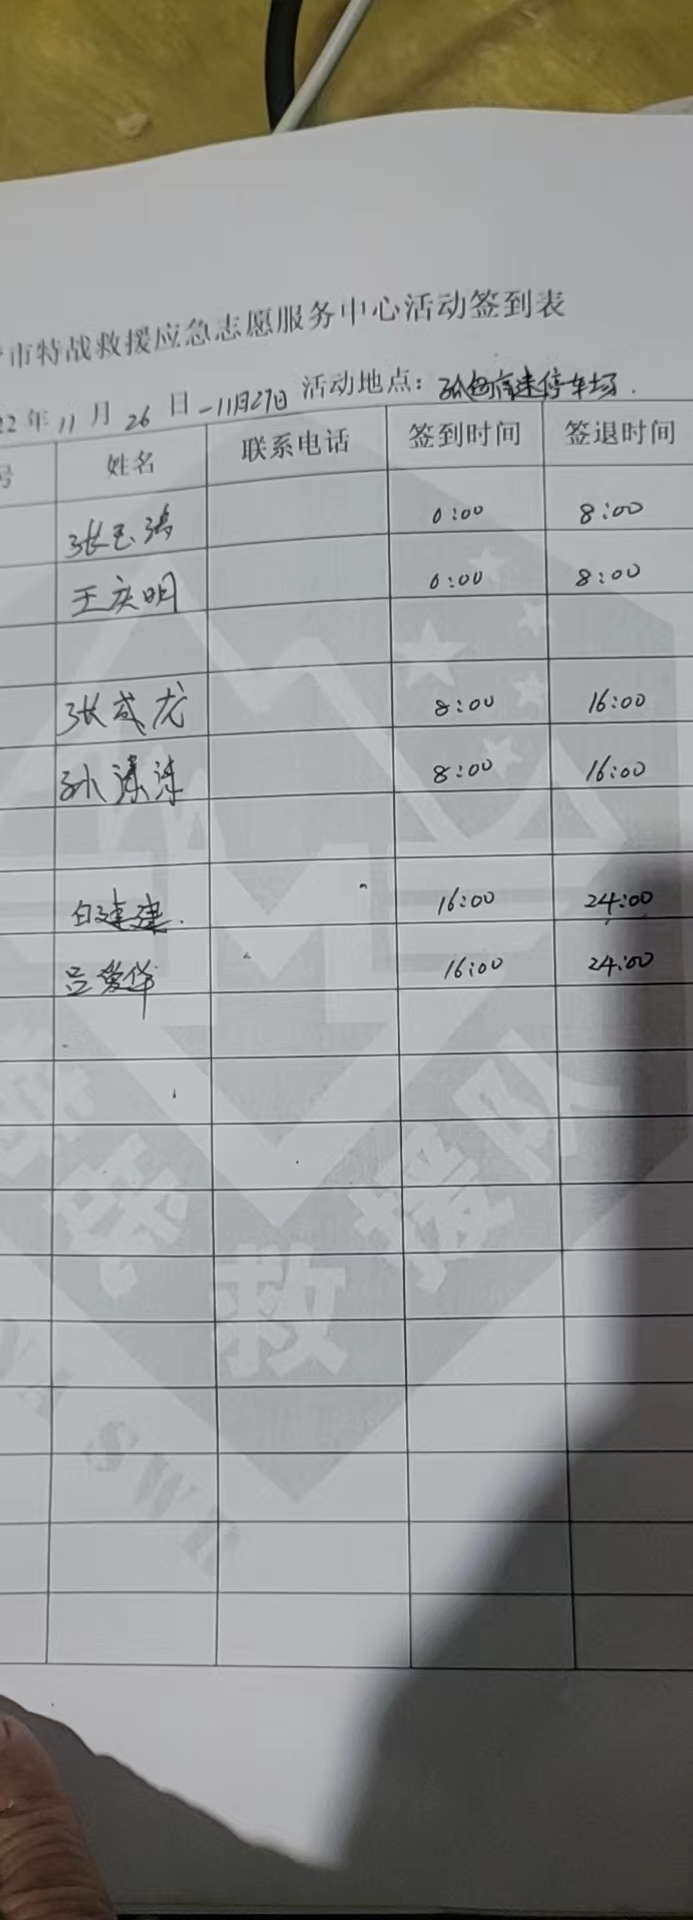 市特战救援应急志愿服务中心活动签到表
22年11月26日-11月27日 活动地点:高速停车场.
号 姓名 联系电话 签到时间 签退时间
张玉鸿 0:00 8:00
王庆明 0:00 8:00
张成龙 8:00 16:00
孙 8:00 16:00
白建建. 16:00 24:00
吕爱华 16:00 24:00
救援队
SWR